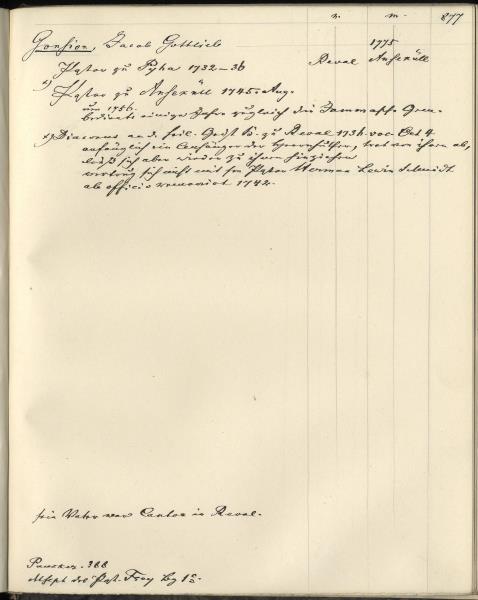 n. m. 877
Gonsior, Jacob Gottlieb 1775
Pastor zu Pyha 1732-36 Reval Anseküll
x) Pastor zu Anseküll 1745. Aug.
um 1756.
bediente einige Jahre zugleich die Jammasche Gem.
x) Diaconus an d. heil. Geist K. zu Reval 1736 voc. Oct 4
anfänglich ein Anhänger der Herrnhuther, trat von ihnen ab,
ließ sich aber wieder zu ihnen hinziehen
vertrug sich nicht mit sm Pastor Herman Lewin Schmidt
ab officio removirt 1742.
sein Vater war Cantor in Reval.
Paucker. 368
des Past. Frey